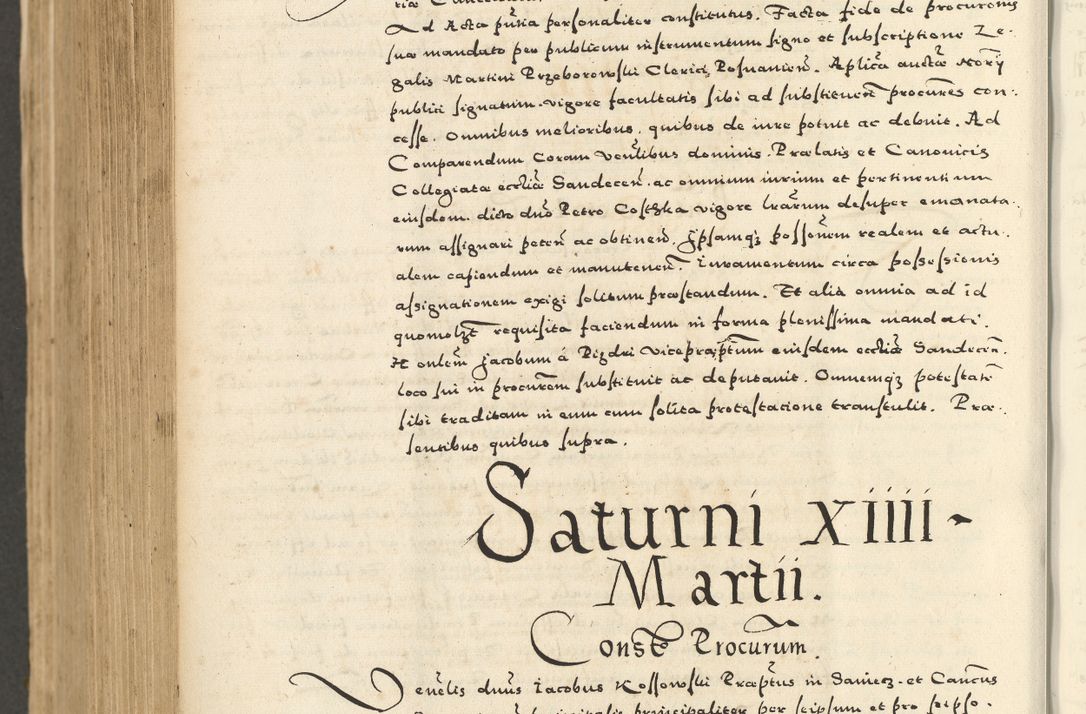 Ad Acta pñtia personaliter constitutus. Facta fide de procuronis
suæ mandato per publicum instrumentum signo et subscriptione Ze-
galis Martini Przeborowski Clerici Posnanieñ. Aplicâ auctæ Norÿ
publici signatum. vigore facultatis sibi ad substituenđ procures con:
cesse. Omnibus melioribus, quibus de iure potuit ac debuit. Ad
Comparendum Coram Veñlibus dominis. Prælatis et Canonicis
Collegiatæ eccliæ Sandeceñ. ac omnium iurium et pertinentium
eiusdem dicto dno Petro Costhka vigore lrarum desuper emanata-
rum assignari peteñ ac obtineñ. Ipsamqz possonem realem et actu-
alem capiendum et manuteneñ. Iuramentum circa possessionis
assignationem exigi solitum præstandum. Et alia omnia ad id
quomolzt requisita faciendum in forma plenissima mandati.
Jacobum á Pizdri Vicepræptum eiusdem eccliæ Sandeceñ.
loco sui in procurem substituit ac deputauit. Omnemqz potestatem
sibi traditam in eum cum solita protestacione transtulit. Præ-
sentibus quibus supra.
Saturni xiiii-
Martii.
Constō Procurum.
Veñelis dnus Iacobus Kossowski Præptus in Saniecz. et Cancus
principaliter per seipsum et pro seipso.